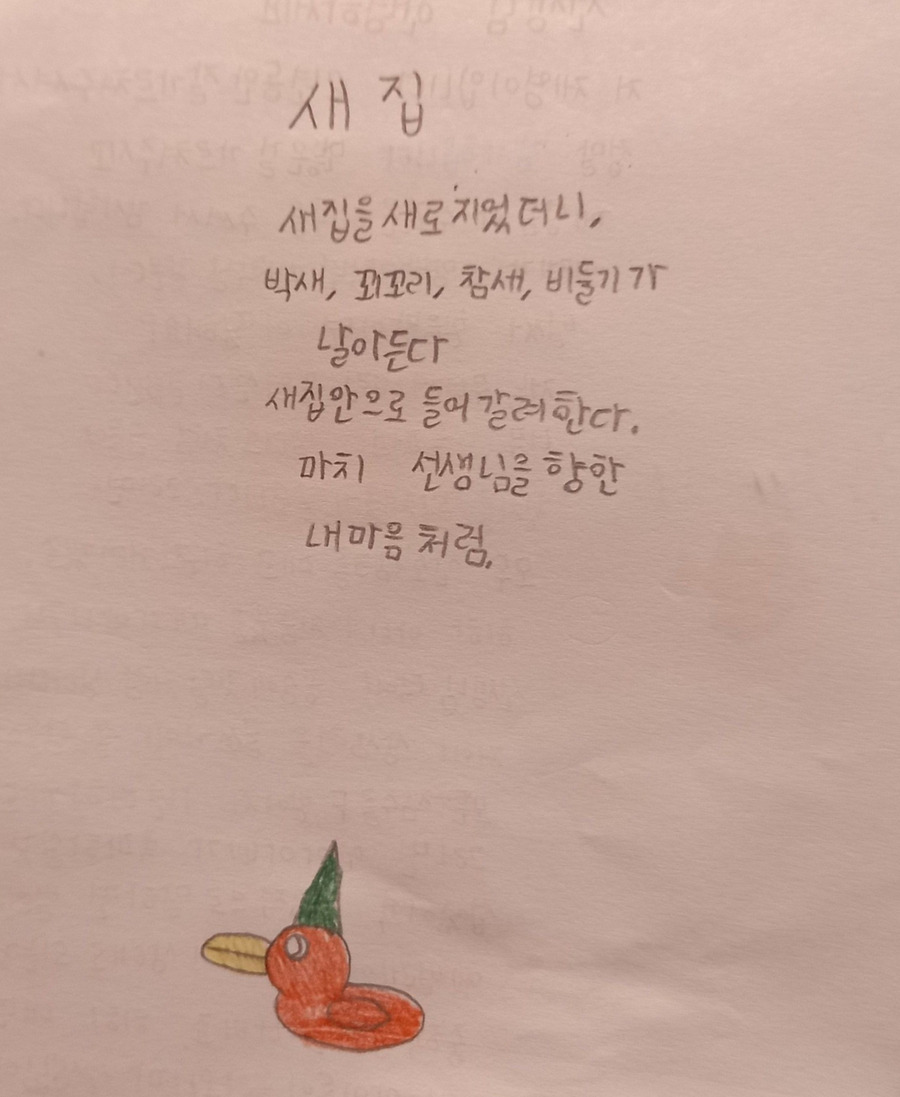 새 집
새집을 새로 지었더니,
박새, 꾀꼬리, 참세, 비둘기가
날아든다
새집안으로 들어갈려한다.
마치 선생님을 향한
내마음처럼.